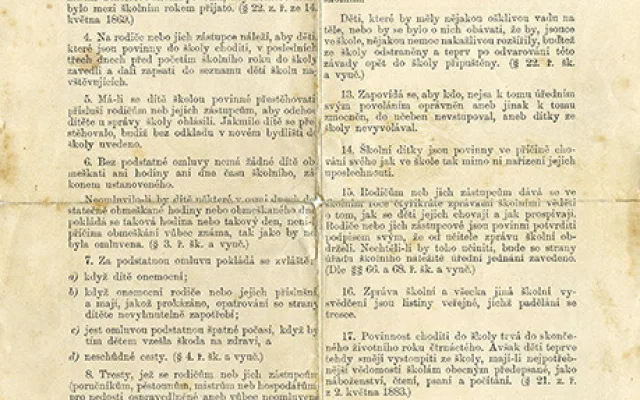 bylo mezi školním rokem přijato. (§ 22. z. ze 14.
května 1869.)
4. Na rodiče nebo jich zástupce náleží, aby děti,
které jsou povinny do školy choditi, v posledních
třech dnech před početím školního roku do školy
zavedli a dali zapsati do seznamu dětí školu na-
vštěvujících.
5. Má-li se dítě školou povinné přestěhovati
přísluší rodičům neb jejich zástupcům, aby odchod
dítěte u správy školy ohlásili. Jakmile dítě se pře-
stěhovalo, budiž bez odkladu v novém bydlišti do
školy uvedeno.
6. Bez podstatné omluvy nemá žádné dítě ob-
meškati ani hodiny ani dne času školního, zá-
konem ustanoveného.
Neomluvilo-li by dítě některé v osmi dnech do-
statečně obmeškané hodiny nebo obmeškaného dne
pokládá se taková hodina nebo takový den, není-
příčina obmeškání vůbec známa, tak jako by ne-
byla omluvena. (§ 3. ř. šk. a vyuč.)
7. Za podstatnou omluvu pokládá se zvláště:
a) když dítě onemocní;
b) když onemocní rodiče nebo jejich příslušní
a mají, jakož prokázáno, opatrování se strany
dítěte nevyhnutelně zapotřebí;
c) jest omluvou podstatnou špatné počasí, když by
tím dětem vzešla škoda na zdraví, a
d) neschůdné cesty. (§ 4. ř. šk. a vyuč.)
8. Tresty, jež se rodičům neb jejich zástupcům
(poručníkům, pěstounům, mistrům neb hospodářům
pro nedosti ospravedlněné aneb vůbec neomluvené
Děti, které by měly nějakou ošklivou vadu na
těle, nebo by se bylo o nich obávati, že by, jsouce
ve škole, nějakou nemoc nakažlivou rozšířily, buďtež
ze školy odstraněny a teprv po odvarování této
závady opět do školy připuštěny. (§ 22. ř. šk.
a vyuč.)
13. Zapovídá se, aby kdo, nejsa k tomu úředním
svým povoláním oprávněn aneb jinak k tomu
zmocněn, do učeben nevstupoval, aneb dítky ze
školy nevyvolával.
14. Školní dítky jsou povinny ve příčině cho-
vání svého jak ve škole tak mimo ni nařízení jejich
uposlechnouti.
15. Rodičům neb jich zástupcům dává se ve
školním roce čtyřikráte zprávami školními věděti
o tom, jak se děti jejich chovají a jak prospívají.
Rodiče nebo jich zástupcové jsou povinni potvrditi
podpisem svým, že od učitele zprávu školní ob-
drželi. Nechtěli-li by toho učiniti, bude se strany
úřadu školního náležité úřední jednání zavedeno.
(Dle §§ 66. a 68. ř. šk. a vyuč.)
16. Zpráva školní a všecka jiná školní vy-
svědčení jsou listiny veřejné, jichž padělání se
tresce.
17. Povinnost choditi do školy trvá do skonče-
ného životního roku čtrnáctého. Avšak děti teprve
tehdy smějí vystoupiti ze školy, mají-li nejpotřeb-
nější vědomosti školám obecným předepsané, jako
náboženství, čtení, psaní a počítání. (§ 21. z. ř.
z 2. května 1883.)